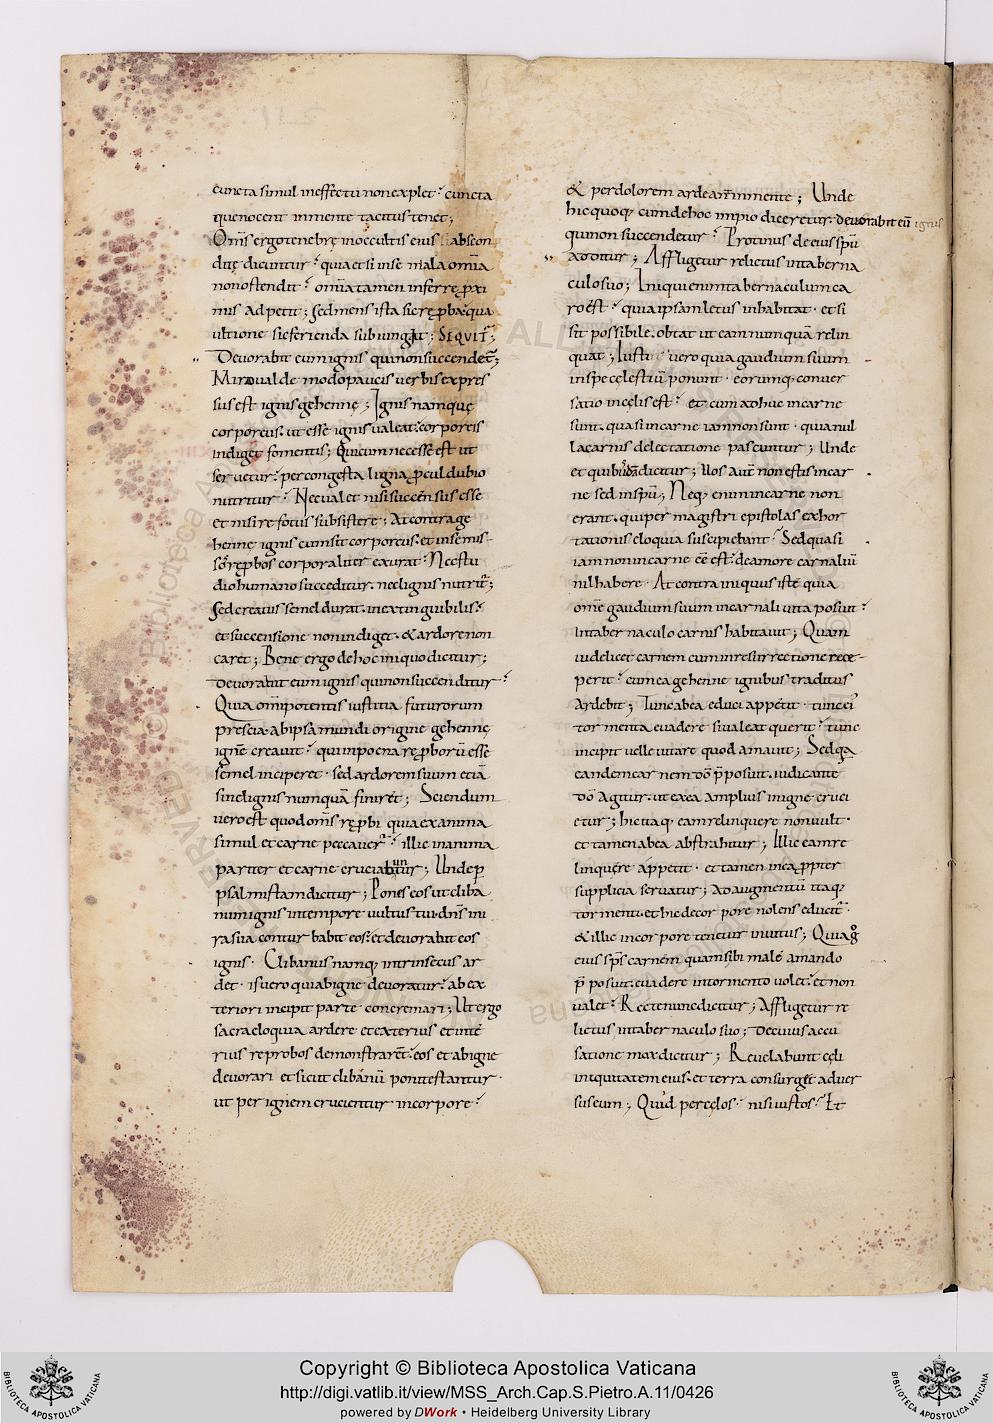 cuncta simul in effectu non explet; cuncta
que nocent in mente tacitus tenet;
Om̄s ergo tenebrę in occultis eius abscon
ditę dicuntur; quia et si in se mala omīa
non ostendit; omīa tamen inferre ꝓxi
mis ad petit; sed mens ista sic reꝓba; qua
ultione sit ferienda subiungit; SEQVIT᷒;
Devorabit eum ignis qui non succendet᷒;
Miro valde modo paucis verbis expres
sus est ignis gehennę; Ignis namque
corporeus. ut esse ignis valeat; corporeis
indiget fomentis; Qui cum necesse est ut
servetur; per congesta ligna ꝓcul dubio
nutritur; Nec valet nisi succensus esse
et nisi refotus subsistere; At contra ge
hennę ignis cum sit corporeus. et in se mis
sos reꝓbos corporaliter exurat; Nec stu
dio humano succeditur. nec lignis nutrit᷒;
Sed creatus semel durat. inextinguibilis;
et succensione non indiget. & ardore non
caret; Bene ergo de hoc iniquo dicitur;
Devorabit eum ignis qui non succenditur;
Quia omīpotentis iustitia futurorum
prescia. ab ipsa mundi origine gehennę
ignē creavit; qui in poena reꝓborū esse
semel inciperet. sed ardorem suum etiā
sine lignis numquā finiret; Sciendum
vero est quod om̄s reꝓbi quia ex anima
simul et carne peccaver᷒; illic in anima
pariter et carne cruciabuntur; Unde ꝑ
psalmistam dicitur; Pones eos ut cliba
num ignis in tempore vultus tui. dn̄s in i
ra sua conturbabit eos; et devorabit eos
ignis. Clibanus namq; intrinsecus ar
det. is vero qui ab igne devoratur; ab ex
teriori incipit parte concremari; Ut ergo
sacra eloquia ardere et exterius et inte
rius reprobos demonstrarent; eos et ab igne
devorari et sicut clibanū poni testantur.
ut per ignem crucientur in corpore;
& per dolorem ardeant in mente; Unde
hic quoq; cum de hoc impio diceretur. devorabit eū ignis
qui non succendetur; Protinus de eius sp̄u
additur; Affligetur relictus in taberna
culo suo; Iniqui enim tabernaculum ca
ro est; quia ipsam letus inhabitat. et si
sit possibile. obtat ut eam numquā relin
quat; Iusti vero quia gaudium suum
in spe celestiū ponunt. eorumq; conver
satio in cęlis est; et cum adhuc in carne
sunt. quasi in carne iam non sunt. quia nul
la carnis delectatione pascuntur; Unde
et quibusdā dicitur; Uos aut̄ non estis in car
ne sed in sp̄u; Neq; enim in carne non
erant. qui per magistri epistolas exhor
tationis eloquia suscipiebant; Sed quasi
iam non in carne ēe est; de amore carnaliū
nil habere. At contra iniquus iste quia
omē gaudium suum in carnali vita posuit;
In tabernaculo carnis habitavit; Quam
videlicet carnem cum in resurrectione rece
perit; cum ea gehenne ignibus traditus
ardebit; Tunc ab ea educi appetit. tunc ei᷒
tormenta evadere si valeat querit; tunc
incipit velle vitare quod amavit; Sed qa
eandem carnem dō p̄posuit. iudicante
dō agitur. ut ex ea amplius in igne cruci
etur; hic itaq; eam relinquere non vult.
et tamen ab ea abstrahitur; Illic eam re
linquere appetit. et tamen in ea ꝓpter
supplicia servatur; Ad augmentū itaq;
tormenti. et hic de corpore nolens educit᷒.
& illic in corpore tenetur invitus; Quia g̊
eius sp̄s carnem quam sibi male amando
p̄posuit. evadere in tormento volet; et non
valet; Recte nunc dicitur; Affligetur re
lictus in tabernaculo suo; De cuius accu
satione mox dicitur; Revelabunt cęli
iniquitatem eius. et terra consurget adver
sus eum; Quid per cęlos; nisi iustos; Et
Copyright © Biblioteca Apostolica Vaticana
http://digi.vatlib.it/view/MSS_Arch.Cap.S.Pietro.A.11/0426
powered by DWork • Heidelberg University Library
BIBLIOTECA APOSTOLICA VATICANA
BIBLIOTECA APOSTOLICA VATICANA